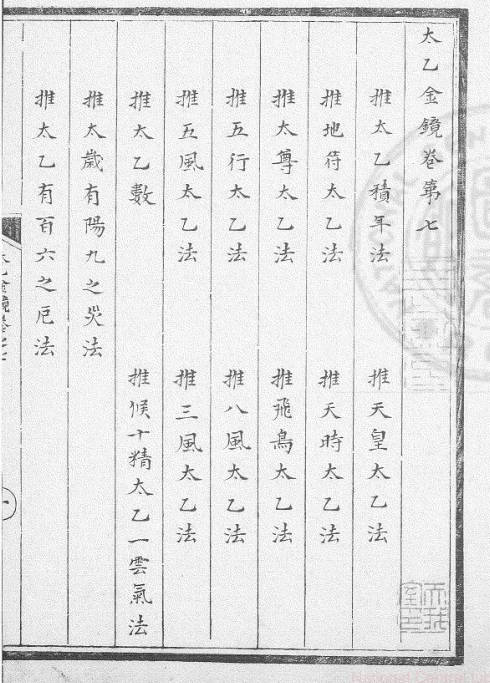 太乙金鏡卷第七
推太乙積年法　推天皇太乙法
推地符太乙法　推天時太乙法
推太尊太乙法　推飛鳥太乙法
推五行太乙法　推八風太乙法
推五風太乙法　推三風太乙法
推太乙數　推候十精太乙一雲氣法
推太歲有陽九之災法
推太乙有百六之厄法